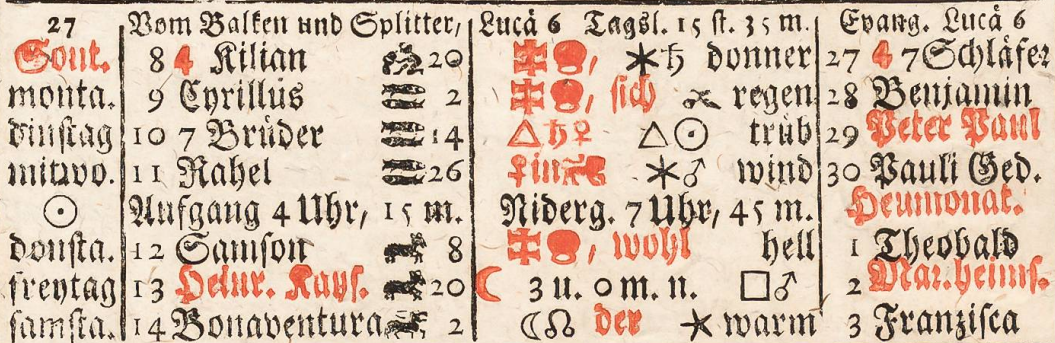 27 Vom Balken und Splitter, Lucä 6 Tagsl. 15 st. 35 m. Evang. Lucä 6
Sont. 8 4 Kilian 20 ⚹♄ donner 27 4 7 Schläfer
monta. 9 Cyrillus 2 sich regen 28 Benjamin
dinstag 10 7 Brüder 14 △♄♀ △☉ trüb 29 Peter Paul
mitwo. 11 Rahel 26 ♀in ⚹♂ wind 30 Pauli Ged.
☉ Aufgang 4 Uhr, 15 m. Niderg. 7 Uhr, 45 m. Heumonat.
donsta. 12 Samson 8 wohl hell 1 Theobald
freytag 13 Heinr. Kays. 20 ☾ 3 u. 0 m. n. □♂ 2 Mar. heims.
samsta. 14 Bonaventura 2 ☾☊ der ⚹ warm 3 Franzisca